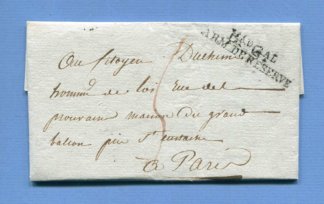 Bau GAL
ARM. DE RÉSERVE
Au Citoyen Duchesne
homme de loi rue des
prouvaire maison du grand
balcon près St eustache
à Paris